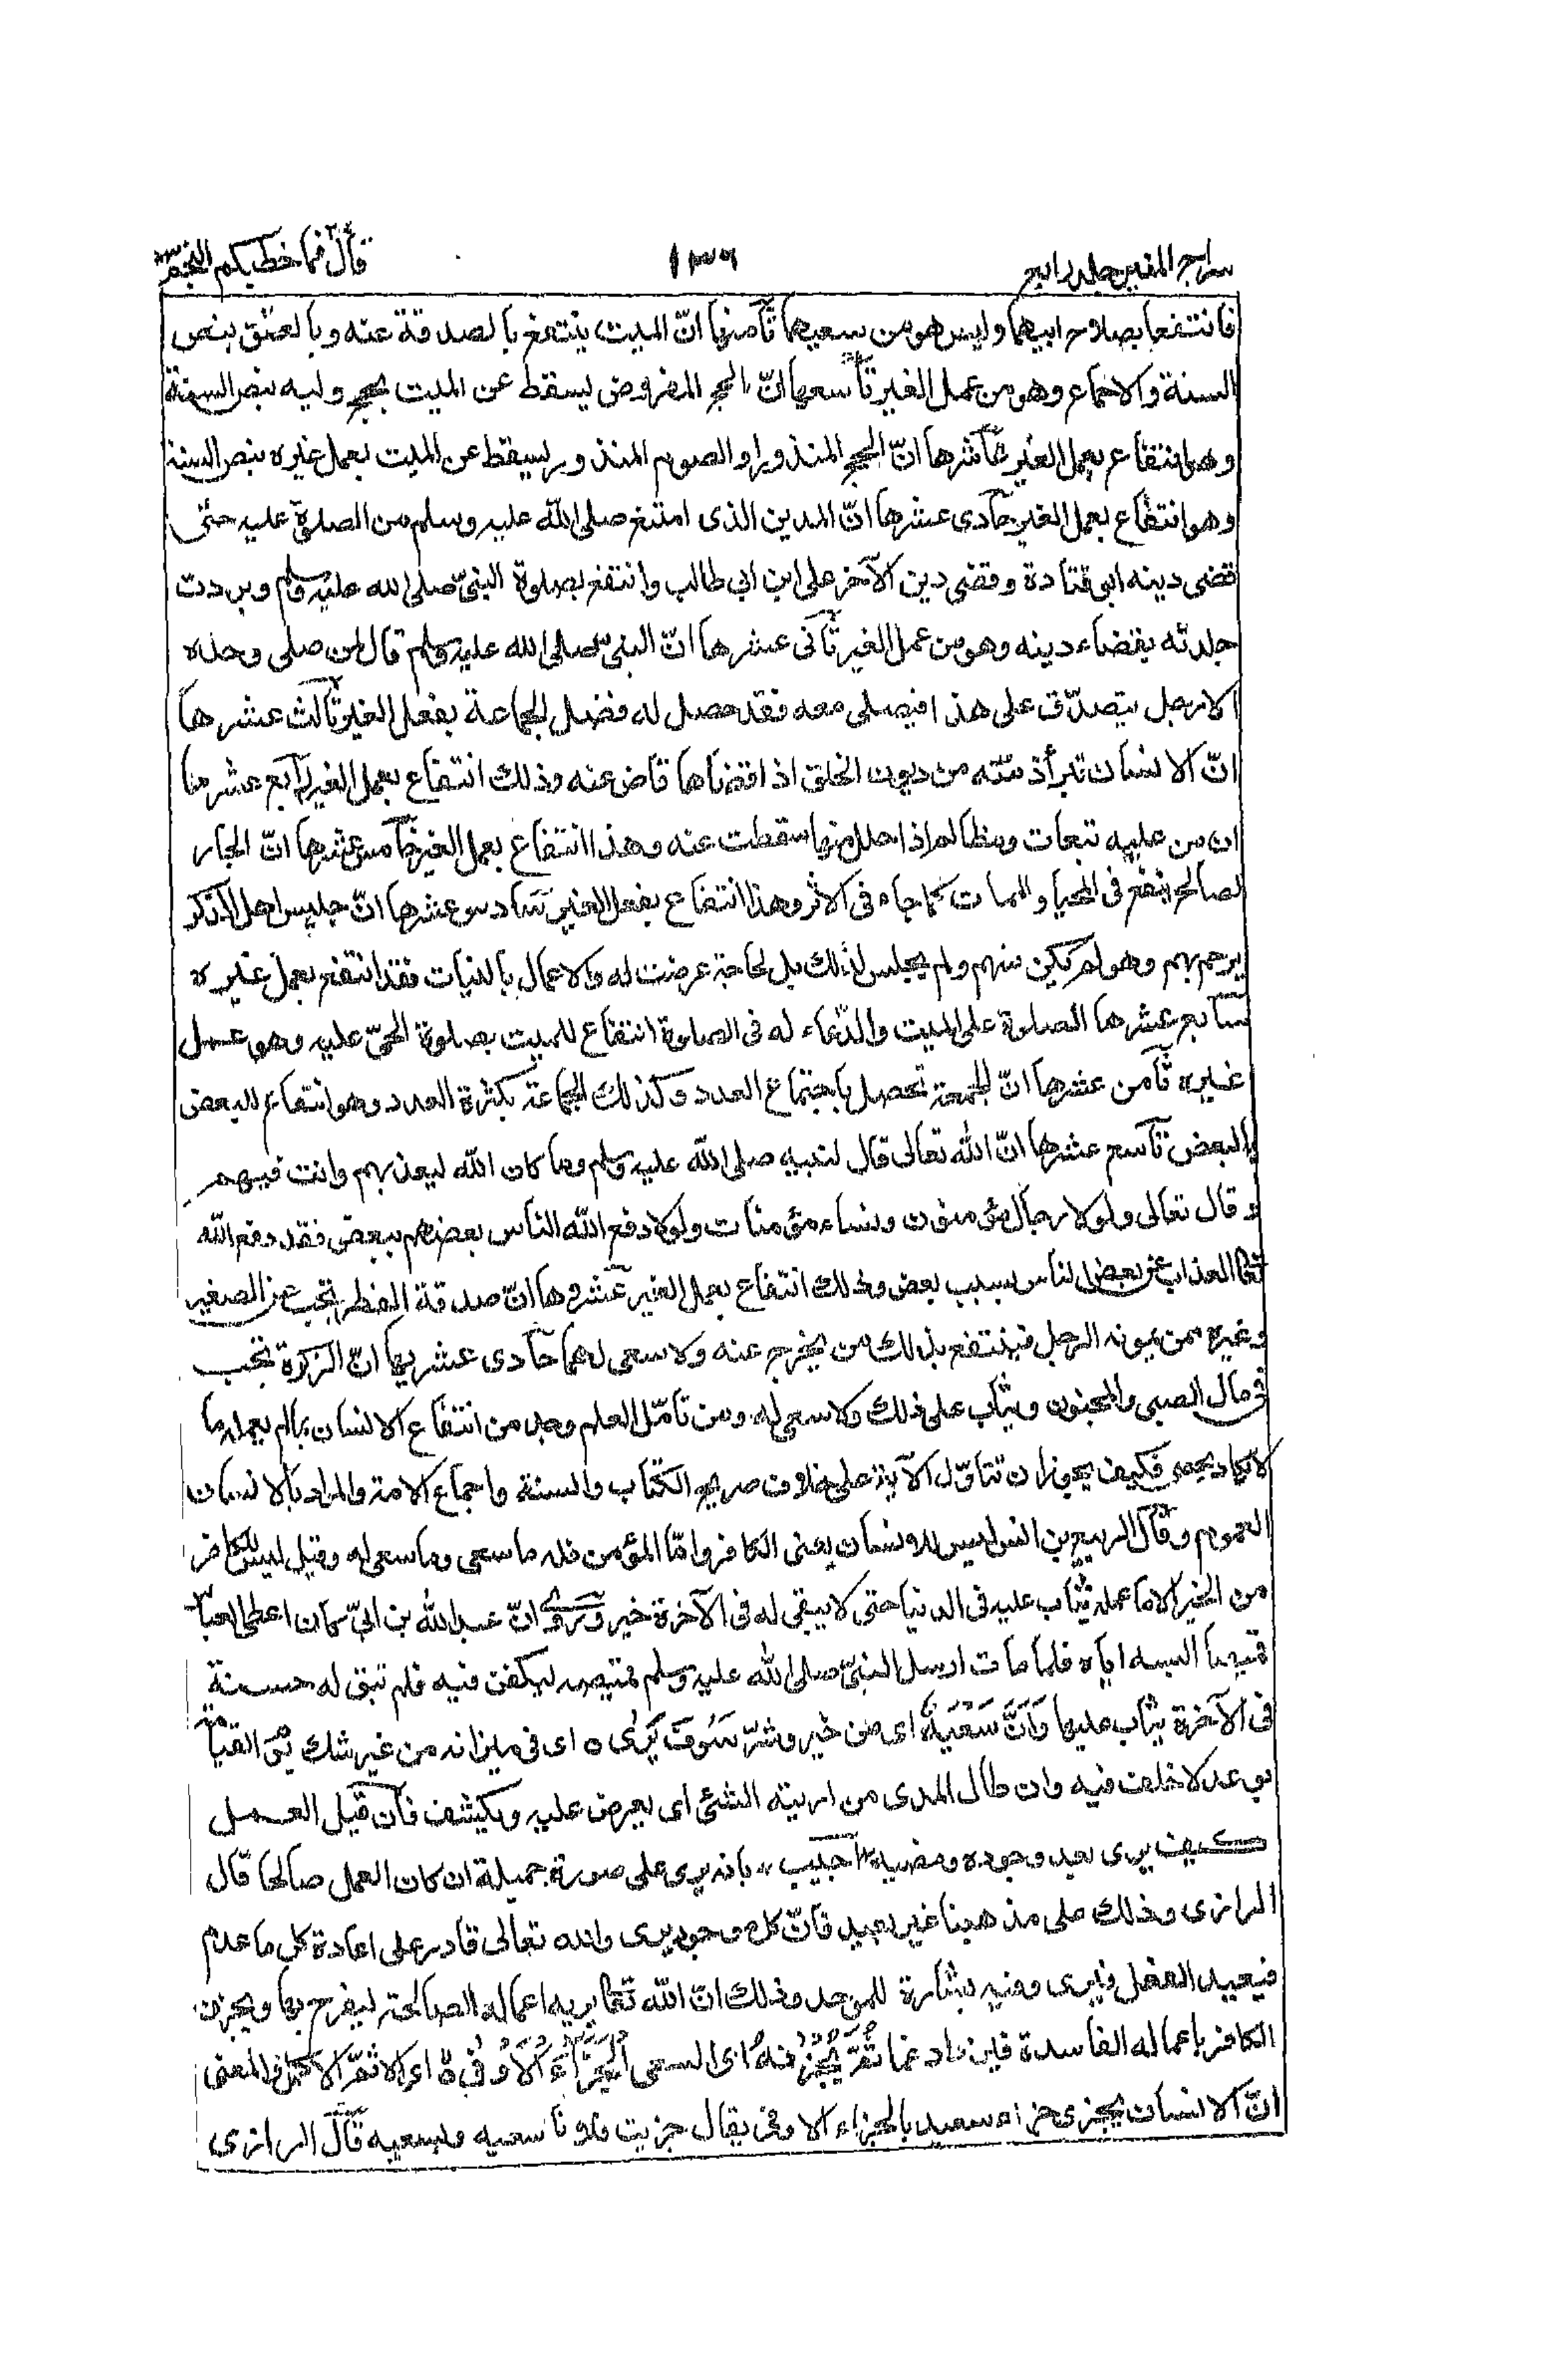 سراج المنير جلد رابع ١٣٦ قال فما خطبكم النجم٥٣
فانتفعا بصلاح ابيهما وليس هو من سعيهما ثامنها انّ الميت ينتفع بالصدقة عنه وبالعتق بنص
السنة والاجماع وهو من عمل الغير تاسعها انّ الحج المفروض يسقط عن الميت بحج وليه بنص السنة
وهو انتفاع بعمل الغير عاشرها انّ الحج المنذور او الصوم المنذور يسقط عن الميت بعمل غيره بنص السنة
وهو انتفاع بعمل الغير حادى عشرها انّ المدين الذى امتنع صلى الله عليه وسلم من الصلوة عليه حتى
قضى دينه ابى قتادة وقضى دين الآخر على ابن ابى طالب وانتفع بصلوة النبىّ صلى الله عليه وسلم وبردت
جلدته بقضاء دينه وهو من عمل الغير ثانى عشرها انّ النبىّ صلى الله عليه وسلم قال لمن صلى وحده
الا رجل يتصدّق على هذا فيصلى معه فقد حصل له فضل الجماعة بفعل الغير ثالث عشرها
انّ الانسان تبرأ ذمّته من ديون الخلق اذا قضاها قاض عنه وذلك انتفاع بعمل الغير رابع عشرها
ان من عليه تبعات ومظالم اذا حلل منها سقطت عنه وهذا انتفاع بعمل الغير خامس عشرها انّ الجار
لصالح ينفع فى المحيا والممات كما جاء فى الاثر وهذا انتفاع بفعل الغير سادس عشرها انّ جليس اهل الذكر
يرحم بهم وهو لم يكن منهم ولم يجلس لذلك بل لحاجة عرضت له والاعمال بالنيات فقد انتفع بعمل غيره
سابع عشرها الصلوة على الميت والدّعاء له فى الصلوة انتفاع للميت بصلوة الحىّ عليه وهو عمل
غيره ثامن عشرها انّ الجمعة تحصل باجتماع العدد وكذلك الجماعة بكثرة العدد وهو انتفاع للبعض
بالبعض تاسع عشرها انّ الله تعالى قال لنبيه صلى الله عليه وسلم وما كان الله ليعذبهم وانت فيهم
وقال تعالى ولولا رجال مؤمنون ونساء مؤمنات ولولا دفع الله الناس بعضهم ببعض فقد دفع الله
تعا العذاب عن بعض الناس بسبب بعض وذلك انتفاع بعمل الغير عشروها انّ صدقة الفطر تجب عن الصغير
وغيره ممن يمونه الرجل فينتفع بذلك من يخرج عنه ولا سعى لهما حادى عشريها انّ الزكوة تجب
فى مال الصبى والمجنون ويثاب على ذلك ولا سعى له ومن تامّل العلم وجد من انتفاع الانسان بما لم يعمله ما
لا يكاد يحصى فكيف يجوز ان تتاوّل الآية على خلاف صريح الكتاب والسنة واجماع الامة والمراد بالانسان
العموم وقال الربيع بن انس ليس للانسان يعنى الكافر وامّا المؤمن فله ما سعى وما سعى له وقيل ليس للكافر
من الخير الا ما عمله يثاب عليه فى الدنيا حتى لا يبقى له فى الآخرة خير وروى انّ عبد الله بن ابىّ كان اعطى العباس
قميصا البسه اياه فلما مات ارسل النبىّ صلى الله عليه وسلم قميصه ليكفن فيه فلم تبق له حسنة
فى الآخرة يثاب عليها وَاَنَّ سَعْيَهٗ اى من خير وشرّ سَوْفَ يُرٰى ٥ اى فى ميزانه من غير شك يوم القيامة
بوعد لا خلف فيه وان طال المدى من اريته الشئ اى يعرض عليه ويكشف فان قيل العمل
كيف يرى بعد وجوده ومضيه اجيب بانه يرى على صورة جميلة ان كان العمل صالحا قال
الرازى وذلك على مذهبنا غير بعيد فانّ كل موجود يرى والله تعالى قادر على اعادة كل ما عدم
فيعيد الفعل فيرى وفيه بشارة للموحد وذلك انّ الله تعا يريه اعماله الصالحة ليفرح بها ويحزن
الكافر باعماله الفاسدة فيزداد غما ثُمَّ يُجْزٰىهُ اى السعى الْجَزَآءَ الْاَوْفٰى ٥ اى الاتمّ الاكمل والمعنى
انّ الانسان يجزى جزاء سعيه بالجزاء الاوفى يقال جزيت فلانا سعيه وبسعيه قال الرازى